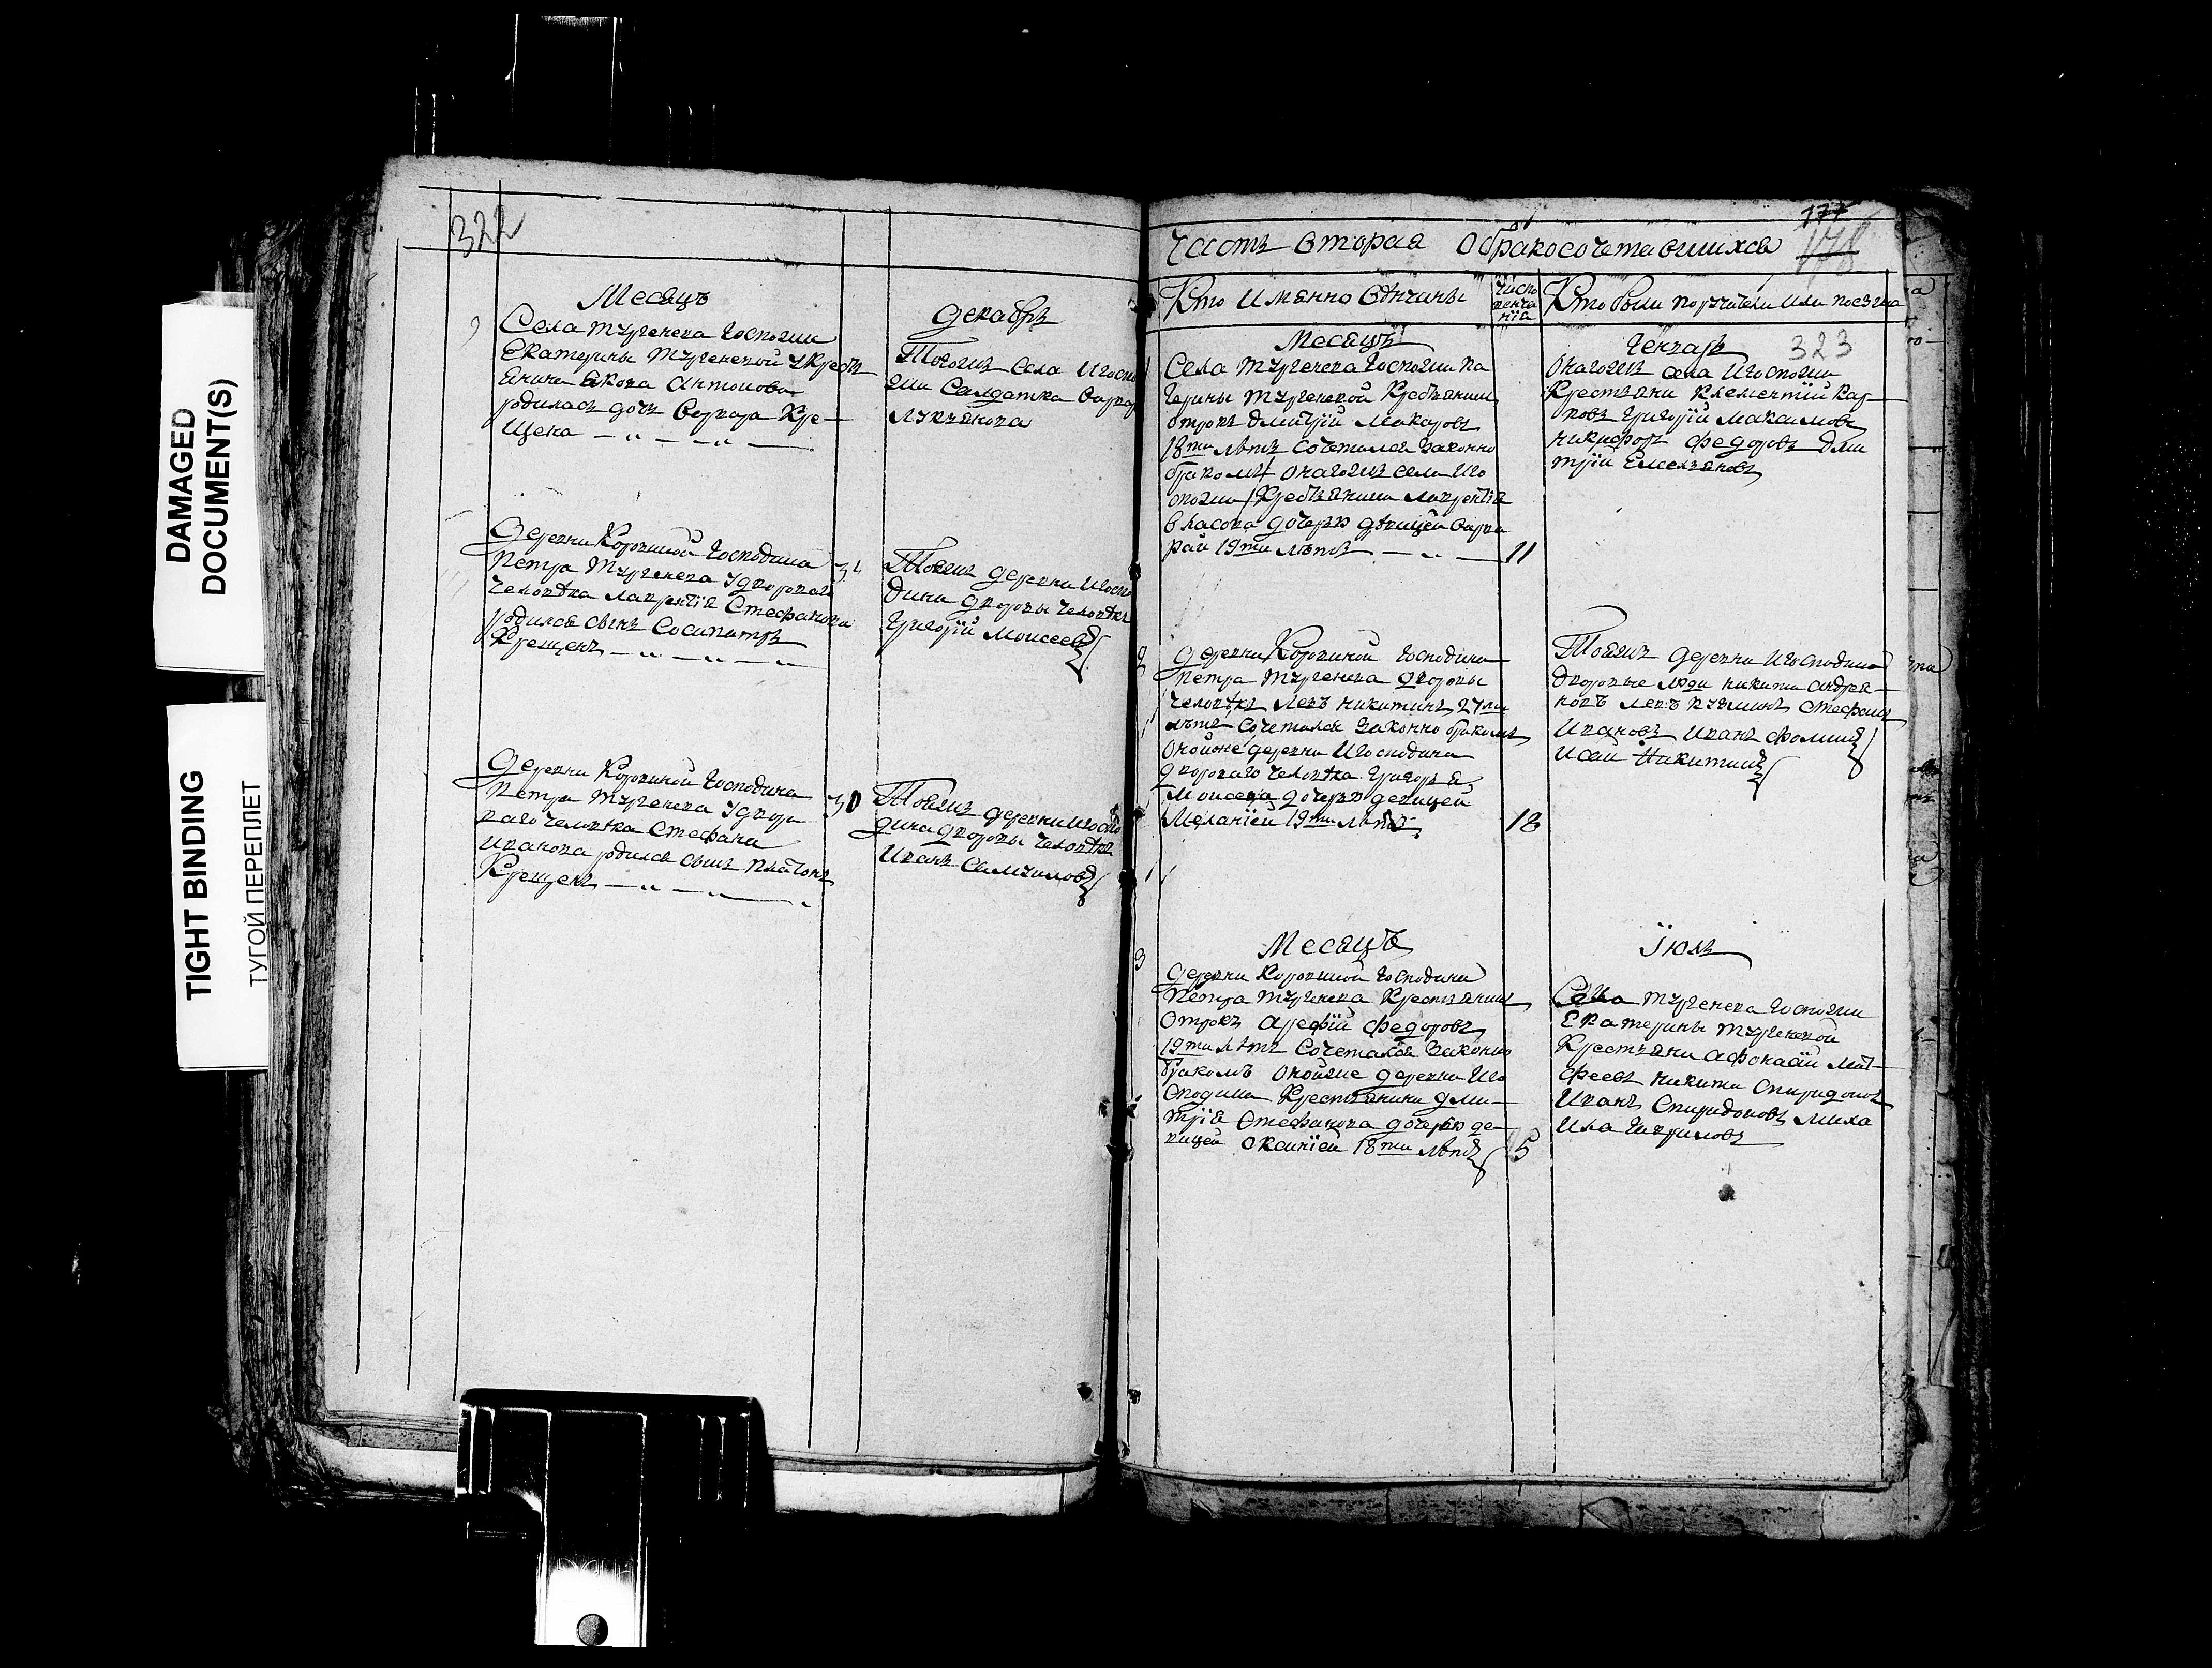 DAMAGED
DOCUMENT(S)
TIGHT BINDING
ТУГОЙ ПЕРЕПЛЕТ
322
Месяцъ
Села Тургенева Госпожи
Екатерины Тургеневой у крестъ
янина Якова Антонова
родилась дочь Варвара кре-
щена
декабрь
Тогожъ села и госпо
жи салдатка Варвар
Лукьянова
Деревни Коровиной Господина
Петра Тургенева у двороваго
человѣка Лаврентія Стефанова
родился сынъ Сосипатръ
крещенъ
Тояжъ деревни и госпо
дина дворовы человѣкъ
Григорій Моисеевъ
Деревни Коровиной Господина
Петра Тургенева у дворо
ваго человѣка Стефана
Иванова родился сынъ Платонъ
крещенъ
30
Тояжъ деревни и госпо
дина дворовы человѣкъ
Иванъ Самуиловъ
177
178
Часть вторая обракосочетавшихся
Кто имянно вѣнчаны
число
венча
нія
Кто были поручители или поезжа
323
Месяцъ
Генварь
Села Тургенева Госпожи Ка
терины Тургеневой крестьянинъ
отрокъ Димитрій Макаровъ
18ти лѣтъ сочетался законно
бракомъ онагожъ села и го
спожи крестьянина Лаврентія
Власова дочерью девицей Варва
рай 19ти лѣтъ
11
онагожъ села и госпожи
крестьяни Клементій Кар
повъ Григорій Максимовъ
Никифоръ Федоровъ Дми
трій Емельяновъ
2
Деревни Коровиной Господина
Петра Тургенева дворовы
человѣкъ Левъ Никитинъ 27ми
лѣтъ сочетался законно бракомъ
оной же деревни и господина
двороваго человѣка Григорья
Моисева дочерью девицей
Меланіей 19ти лѣтъ
18
Тояжъ деревни и господина
дворовые люди Никита Андрея-
новъ Левъ Кузминъ Стефанъ
Ивановъ Иванъ Фоминъ
Исай Никитинъ
3
Месяцъ
Іюль
Деревни Коровиной Господина
Петра Тургенева крестьянинъ
отрокъ Арефій Федоровъ
19ти лѣтъ сочетался законно
бракомъ онойже деревни и го
сподина крестьянина Дми-
трія Стефанова дочерью де-
вицей Оксиніей 18ти лѣтъ
15
Села Тургенева Госпожи
Екатерины Тургеневой
крестьяни Афонасій Мат-
феевъ Никита Спиридоновъ
Иванъ Спиридоновъ Миха
ила Гавриловъ